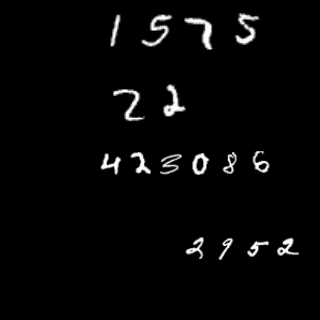 1575
22
423086
2952